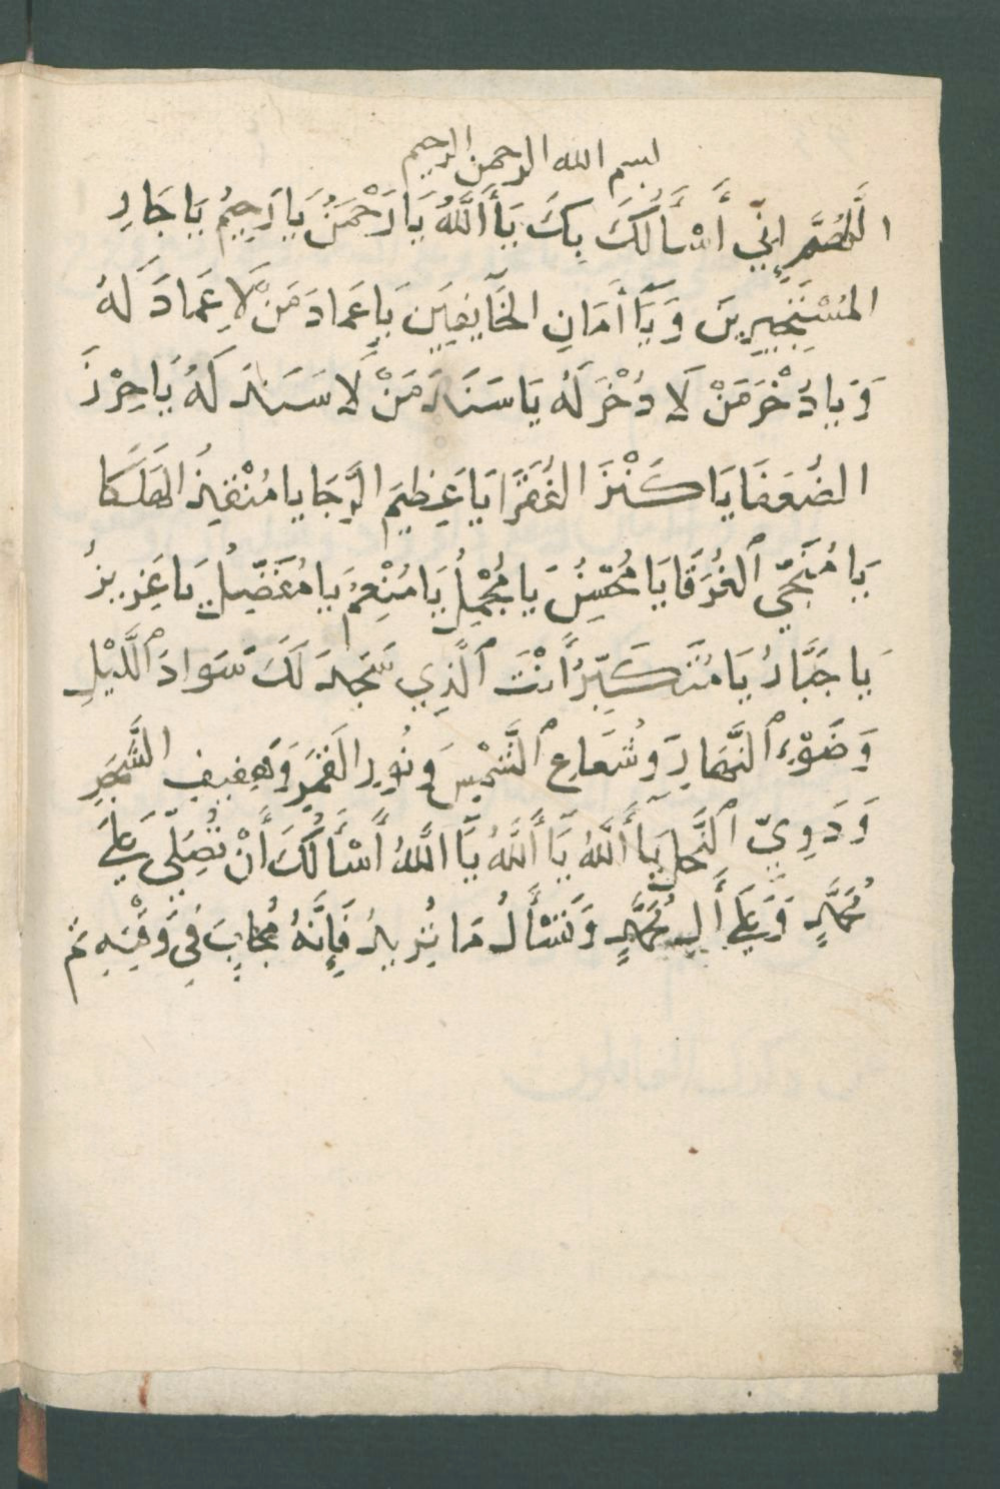 بسم الله الرحمن الرحيم
اللَّهُمَّ إِنِّي أَسْأَلُكَ بِكَ يَا أَللَّهُ يَا رَحْمَنُ يَا رَحِيمُ يَا جَارِ
المُسْتَجِيرِينَ وَيَا أَمَانِ الخَآيِفِينَ يَا عِمَادَ مَنْ لَا عِمَادَ لَهُ
وَيَا ذُخْرَ مَنْ لَا ذُخْرَ لَهُ يَا سَنَدَ مَنْ لَا سَنَدَ لَهُ يَا حِرْزَ
الضُعَفَا يَا كَنْزَ الفُقَرَا يَا عَظِيمَ الرَّجَا يا مُنْقِذَ الهَلَكَا
يَا مُنَجِّي ٱلغُرَقَا يَا مُحْسِنُ يَا مُجْمِلُ يَا مُنْعِمُ يَا مُفَضِّلُ يَا عَزِيزُ
يَا جَبَّارُ يَا مُتَكَبِّرُ أَنْتَ ٱلَّذِي سَجَدَ لَكَ سَوادَ ٱللَّيْلِ
وَضَوْءِ ٱلنَّهَارِ وَشُعَاعِ ٱلشَّمْسِ وَنُورِ القَمَرِ وَهَفِيفِ الشَّجَرِ
وَدَوِيِّ ٱلنَّحلِ يَا أَللَّهُ يَا أَللَّهُ يَا اللَّهُ أَسْأَلُكَ أَنْ تُصَلِّي عَلَى
مُحَمَّدٍ وَعَلَى أَلِ مُحَمَّدٍ وَتَسْأَلُ مَا تُرِيدُ فَإِنَّهُ مُجَابٌ فِي وَقْتِهِ تم